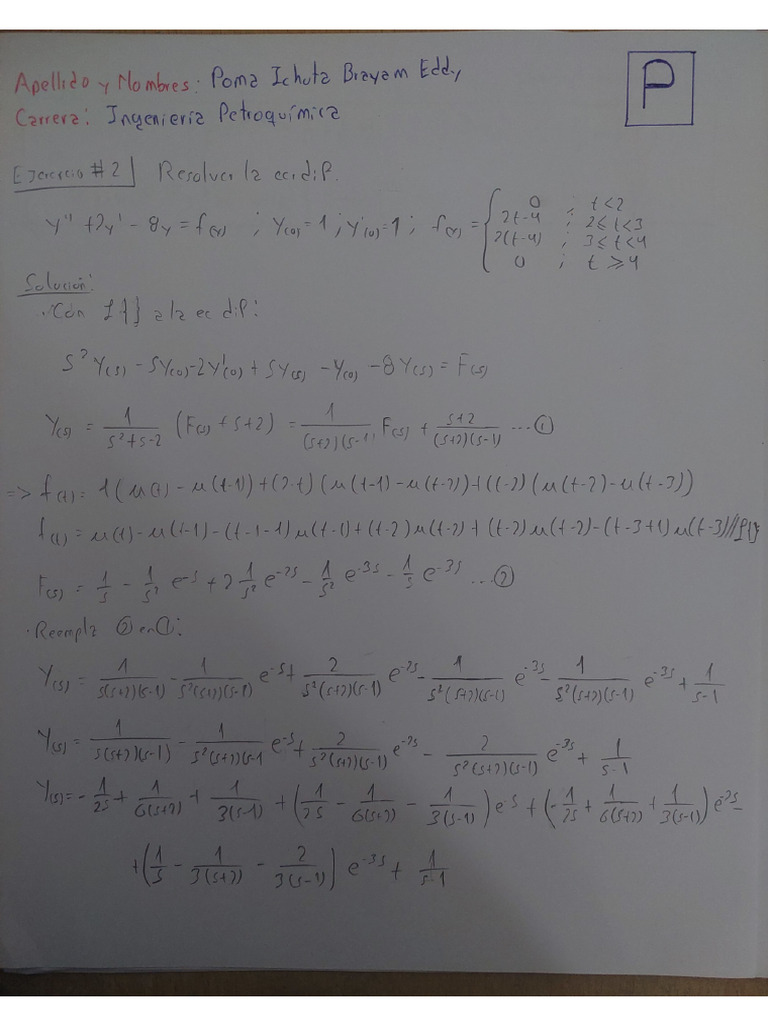 Apellido y Nombres: Poma Ichuta Brayam Eddy
P
Carrera: Ingeniería Petroquímica
Ejercicio #2 Resolver la ec.dif.
y'' + 2y' - 8y = f(x) ; y(0) = 1 ; y'(0) = 1 ; f(x) = { 0 ; t < 2
2t-4 ; 2 ≤ t < 3
2(t-4) ; 3 ≤ t < 4
0 ; t ≥ 4
Solución:
· Con L{} a la ec dif:
S² Y(s) - SY(0) - 2Y'(0) + SY(s) - Y(0) - 8Y(s) = F(s)
Y(s) = 1/(s²+s-2) (F(s) + s+2) = 1/((s+2)(s-1)) F(s) + (s+2)/((s+2)(s-1)) ... ①
=> f(t) = 1(u(t) - u(t-1)) + (2-t)(u(t-1) - u(t-2)) + (t-2)(u(t-2) - u(t-3))
f(t) = u(t) - u(t-1) - (t-1-1)u(t-1) + (t-2)u(t-2) + (t-2)u(t-2) - (t-3+1)u(t-3) // L{}
F(s) = 1/s - 1/s² e^-s + 2 1/s² e^-2s - 1/s² e^-3s - 1/s e^-3s ... ②
· Reempla ② en ①:
Y(s) = 1/(s(s+2)(s-1)) - 1/(s²(s+2)(s-1)) e^-s + 2/(s²(s+2)(s-1)) e^-2s - 1/(s²(s+2)(s-1)) e^-3s - 1/(s²(s+2)(s-1)) e^-3s + 1/(s-1)
Y(s) = 1/(s(s+2)(s-1)) - 1/(s²(s+2)(s-1) e^-s + 2/(s²(s+2)(s-1)) e^-2s - 2/(s²(s+2)(s-1)) e^-3s + 1/(s-1)
Y(s) = -1/2s + 1/(6(s+2)) + 1/(3(s-1)) + (1/2s - 1/(6(s+2)) - 1/(3(s-1))) e^-s + (-1/2s + 1/(6(s+2)) + 1/(3(s-1))) e^-2s -
+ (1/s - 1/(3(s+2)) - 2/(3(s-1))) e^-3s + 1/(s-1)